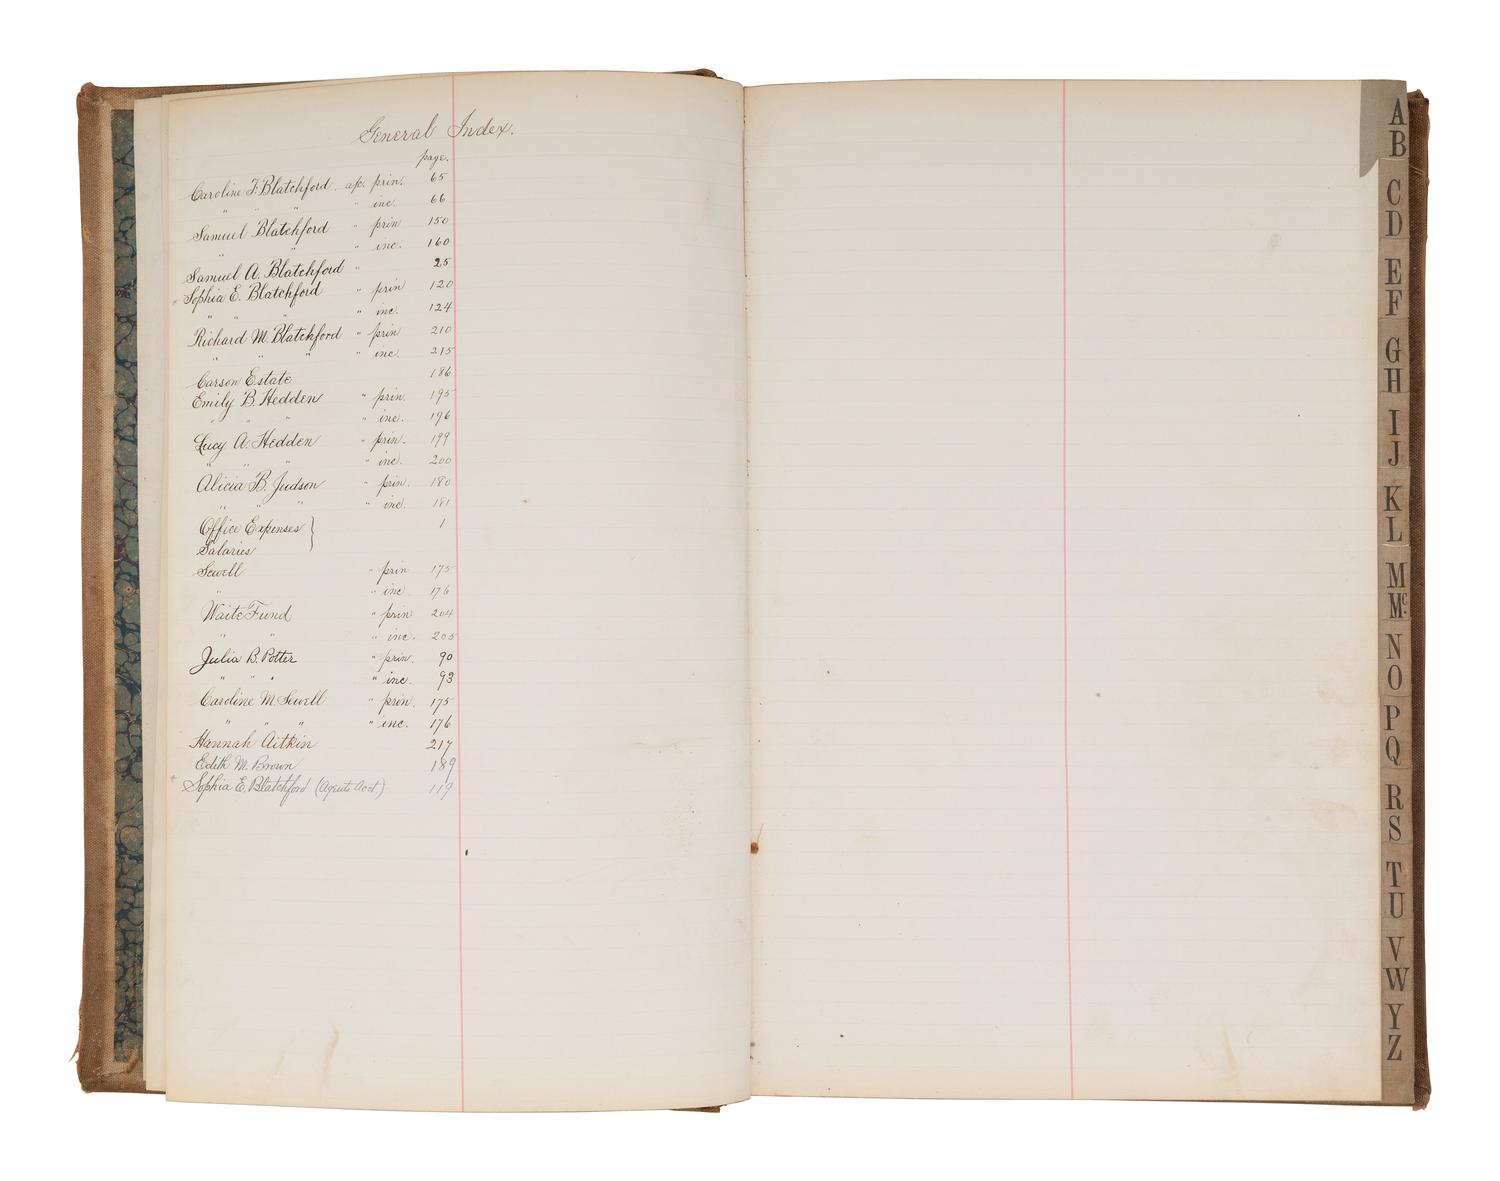 General Index.
page.
Caroline F. Blatchford. a/c. prin. 65
" " " " inc. 66
Samuel Blatchford " prin 150
" " " inc. 160
Samuel A. Blatchford " 25
Sophia E. Blatchford " prin 120
" " " " inc. 124
Richard M. Blatchford " prin 210
" " " " inc. 215
Carson Estate 186
Emily B. Hedden " prin. 195
" " " " inc. 196
Lucy A. Hedden " prin. 199
" " " " inc. 200
Alicia B. Judson " prin. 180
" " " " inc. 181
Office Expenses } 1
Salaries
Sewell " prin 175
" " inc 176
Waite Fund " prin 204
" " " inc. 205
Julia B. Potter " prin. 90
" " " " inc. 93
Caroline M. Sewell " prin. 175
" " " " inc. 176
Hannah Aitkin 217
Edith M. Brown 189
+ Sophia E. Blatchford (Agents Acct.) 119
A
B
C
D
E
F
G
H
I
J
K
L
M
Mc.
N
O
P
Q
R
S
T
U
V
W
Y
Z